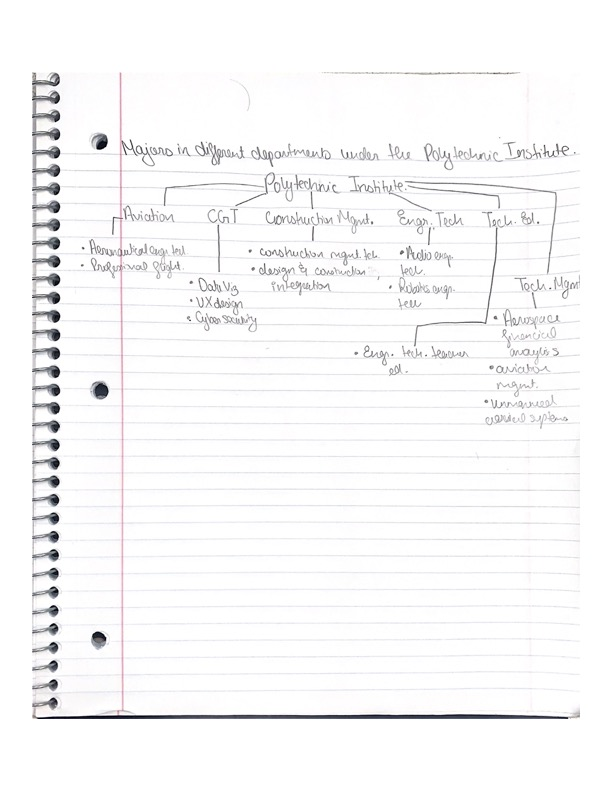 Majors in different departments under the Polytechnic Institute.
Polytechnic Institute.
Aviation
CGT
Construction Mgmt.
Engr. Tech
Tech. Ed.
• Aeronautical engr. tech
• Professional flight.
• Data Viz
• UX design
• Cyber security
• construction mgmt. tech.
• design & construction
integration
• Audio engr.
tech.
• Robotics engr.
tech
• Engr. tech. teacher
ed.
Tech. Mgmt
• Aerospace
financial
analysis
• aviation
mgmt.
• unmanned
aerial systems